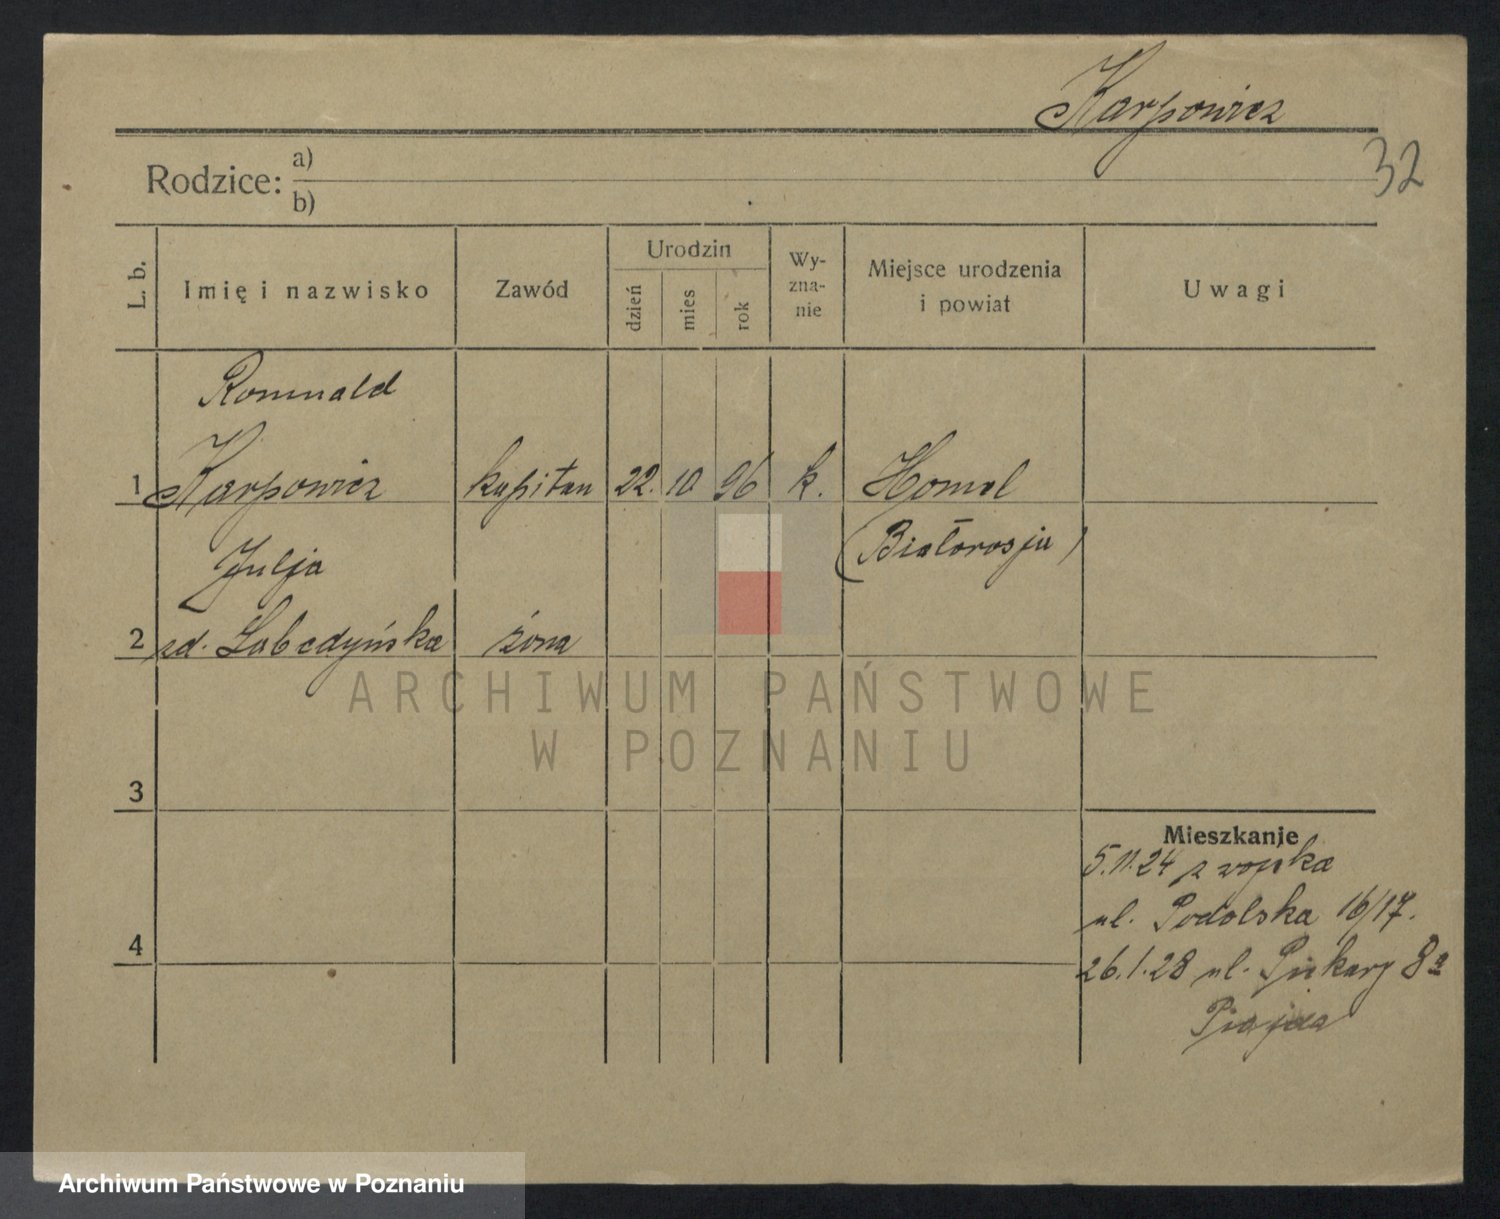 Karpowicz
32
Rodzice: a)
b)
L. b.
Imię i nazwisko
Zawód
Urodzin
dzień
mies
rok
Wy-
zna-
nie
Miejsce urodzenia
i powiat
Uwagi
Romuald
1 Karpowicz kapitan 22. 10 96 k. Homel
(Białorosja)
Julja
2 zd. Łabędyńska żona
ARCHIWUM PAŃSTWOWE
W POZNANIU
3
Mieszkanie
5.11.24 z wojska
ul. Podolska 16/17.
4
26.1.28 ul. Piekary 8a
Archiwum Państwowe w Poznaniu